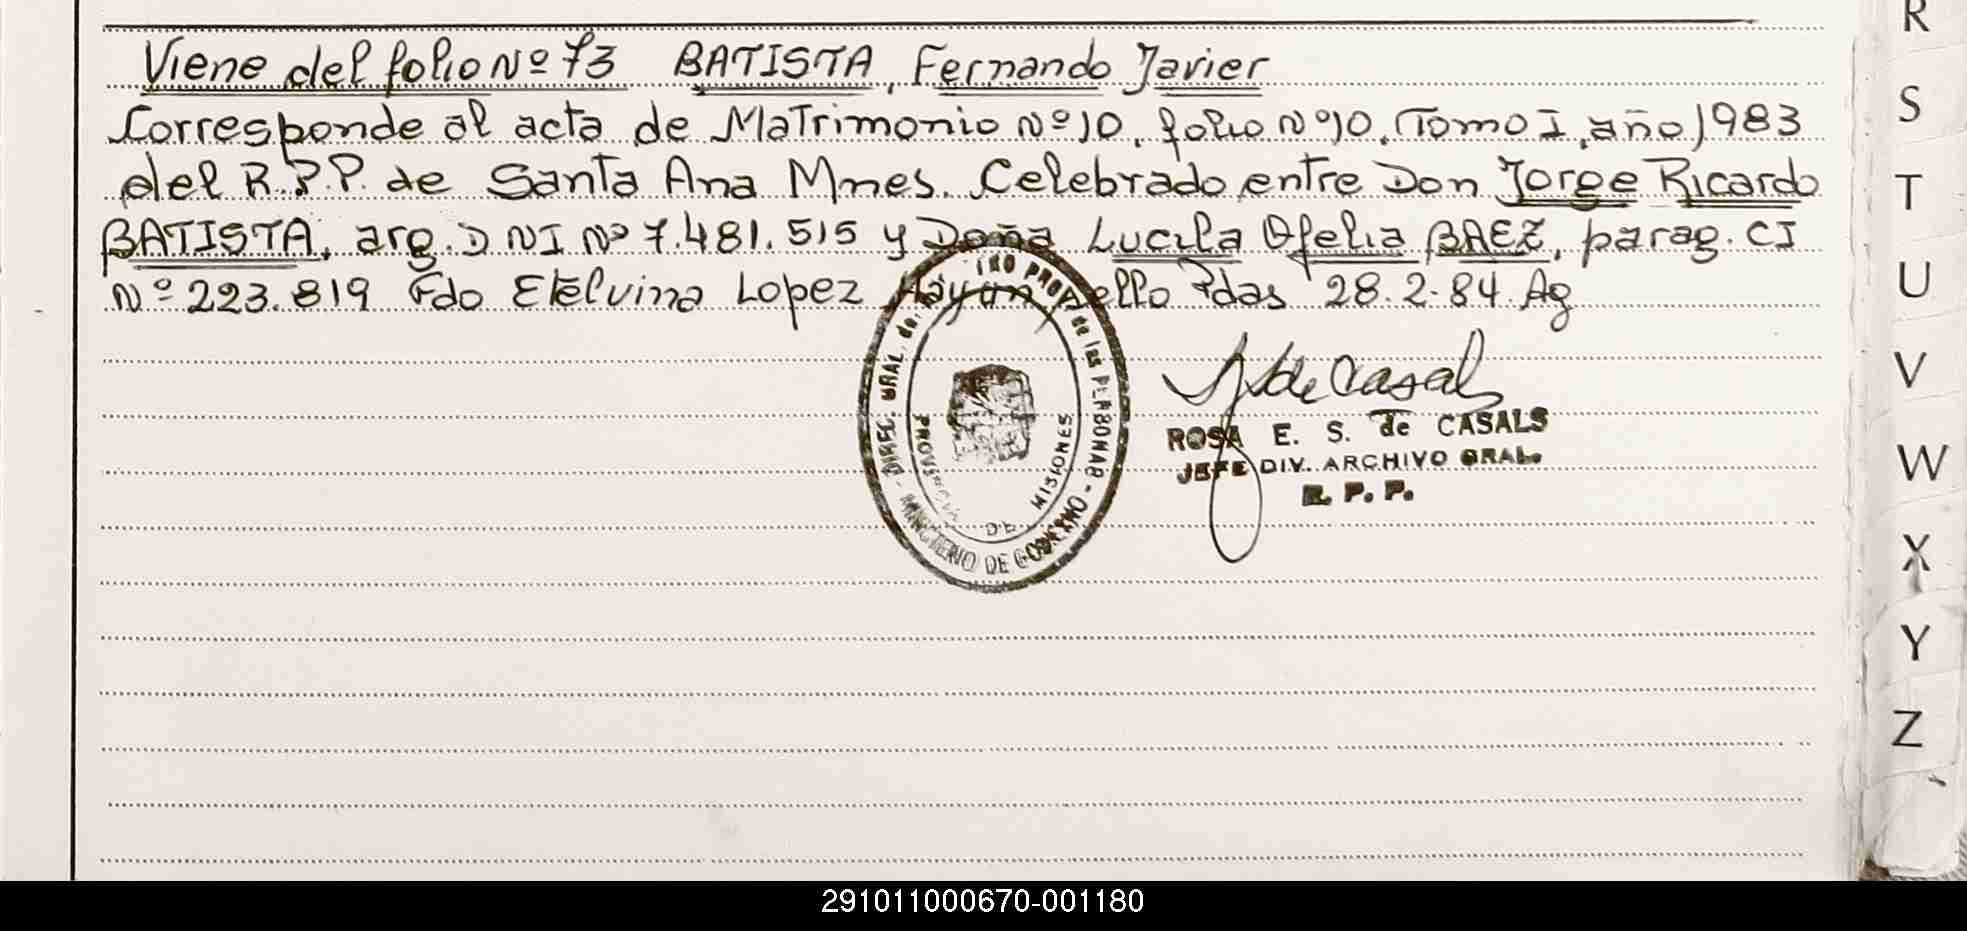 Viene del folio Nº 73 BATISTA, Fernando Javier
Corresponde al acta de Matrimonio Nº 10, folio Nº 10, Tomo I, año 1983
del R.P.P. de Santa Ana Mnes. Celebrado entre Don Jorge Ricardo
BATISTA, arg. DNI Nº 7.481.515 y Doña Lucila Ofelia BAEZ, parag. CI
Nº 223.819 Fdo Etelvina Lopez Hay un sello Pdas 28.2.84 Ag
DIREC. GRAL. de PROV. de las PERSONAS - MINISTERIO DE GOBIERNO -
PROVINCIA DE MISIONES
de Casals
ROSA E. S. de CASALS
JEFE DIV. ARCHIVO GRAL.
R. P. P.
R
S
T
U
V
W
X
Y
Z
291011000670-001180